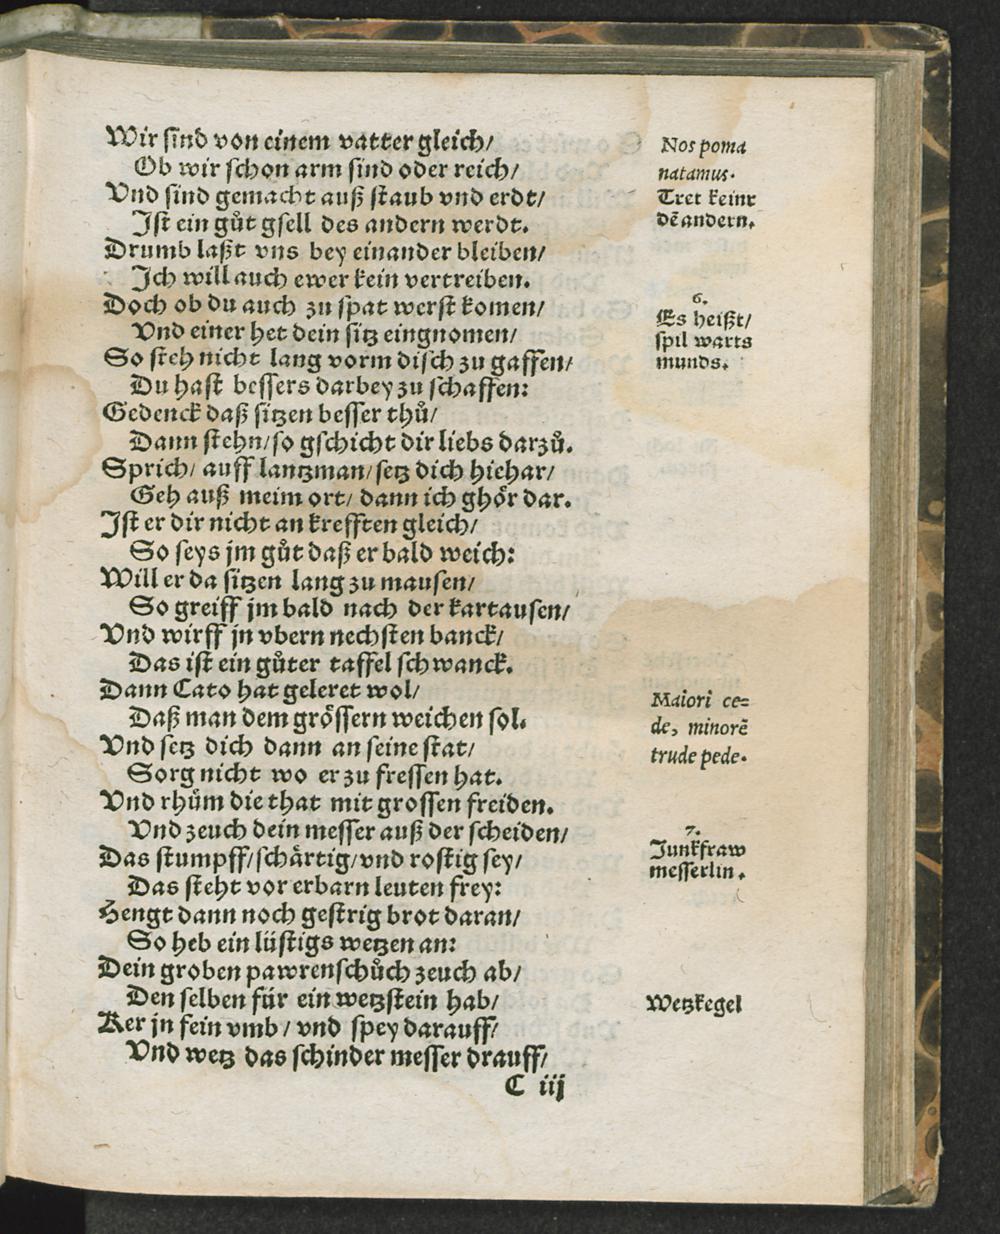 Wir sind von einem vatter gleich/
Ob wir schon arm sind oder reich/
Vnd sind gemacht auß staub vnd erdt/
Ist ein gůt gsell des andern werdt.
Drumb laßt vns bey einander bleiben/
Ich will auch ewer kein vertreiben.
Doch ob du auch zu spat werst komen/
Vnd einer het dein sitz eingnomen/
So steh nicht lang vorm disch zu gaffen/
Du hast bessers darbey zu schaffen:
Gedenck daß sitzen besser thů/
Dann stehn/ so gschicht dir liebs darzů.
Sprich/ auff lantzman/ setz dich hiehar/
Geh auß meim ort/ dann ich ghoͤr dar.
Ist er dir nicht an krefften gleich/
So seys jm gůt daß er bald weich:
Will er da sitzen lang zu mausen/
So greiff jm bald nach der kartausen/
Vnd wirff jn vbern nechsten banck/
Das ist ein gůter taffel schwanck.
Dann Cato hat geleret wol/
Daß man dem groͤssern weichen sol.
Vnd setz dich dann an seine stat/
Sorg nicht wo er zu fressen hat.
Vnd rhům die that mit grossen freiden.
Vnd zeuch dein messer auß der scheiden/
Das stumpff/ schaͤrtig/ vnd rostig sey/
Das steht vor erbarn leuten frey:
Hengt dann noch gestrig brot daran/
So heb ein lüstigs wetzen an:
Dein groben pawrenschůch zeuch ab/
Den selben für ein wetzstein hab/
Ker jn fein vmb / vnd spey darauff/
Vnd wetz das schinder messer drauff/
C iij
Nos poma
natamus.
Tret keinr
dẽ andern.
6.
Es heißt/
spil warts
munds.
Maiori ce=
de, minorẽ
trude pede.
7.
Junkfraw
messerlin.
Wetzkegel